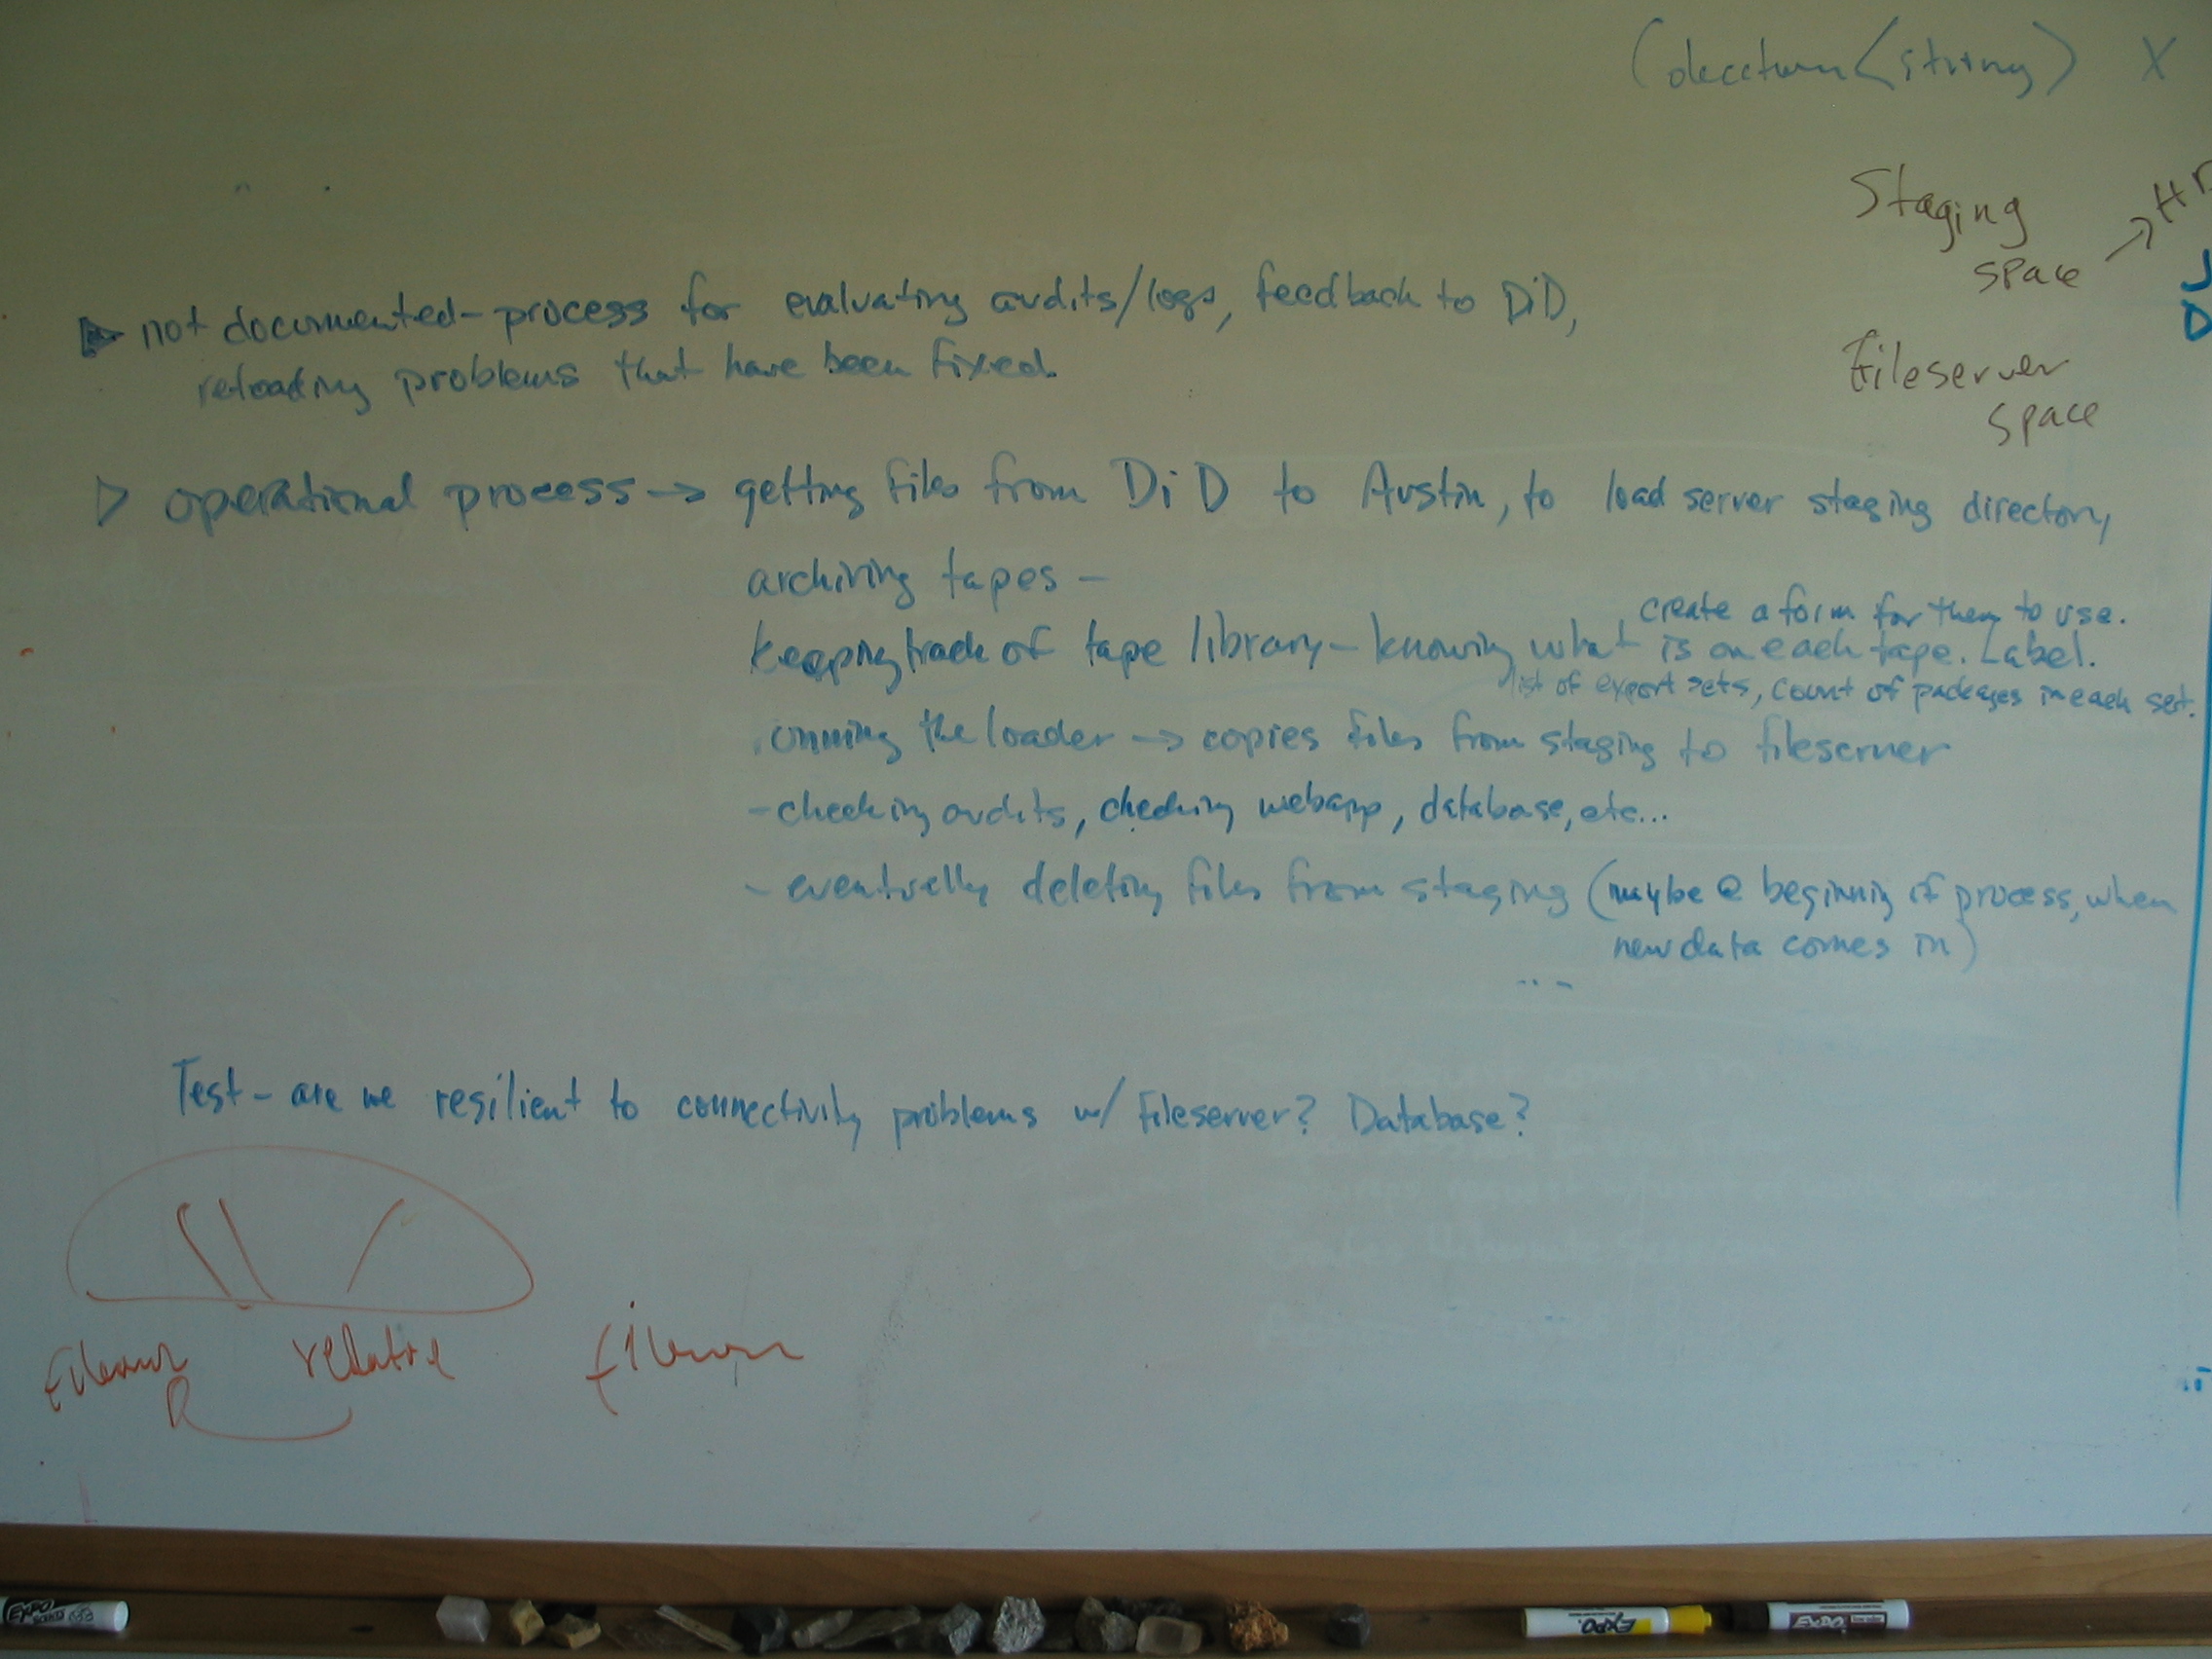 Collection<string> X
Staging
space
Fileserver
space
not documented - process for evaluating audits/logs, feedback to DiD,
reloading problems that have been fixed.
operational process → getting files from DiD to Austin, to load server staging directory
archiving tapes -
create a form for them to use.
keeping track of tape library - knowing what is on each tape. Label.
list of export sets, count of packages in each set.
running the loader → copies files from staging to fileserver
- checking audits, checking webapp, database, etc...
- eventually deleting files from staging (maybe @ beginning of process, when
new data comes in)
...
Test - are we resilient to connectivity problems w/ fileserver? Database?
relative
EXPO
EXPO
EXPO